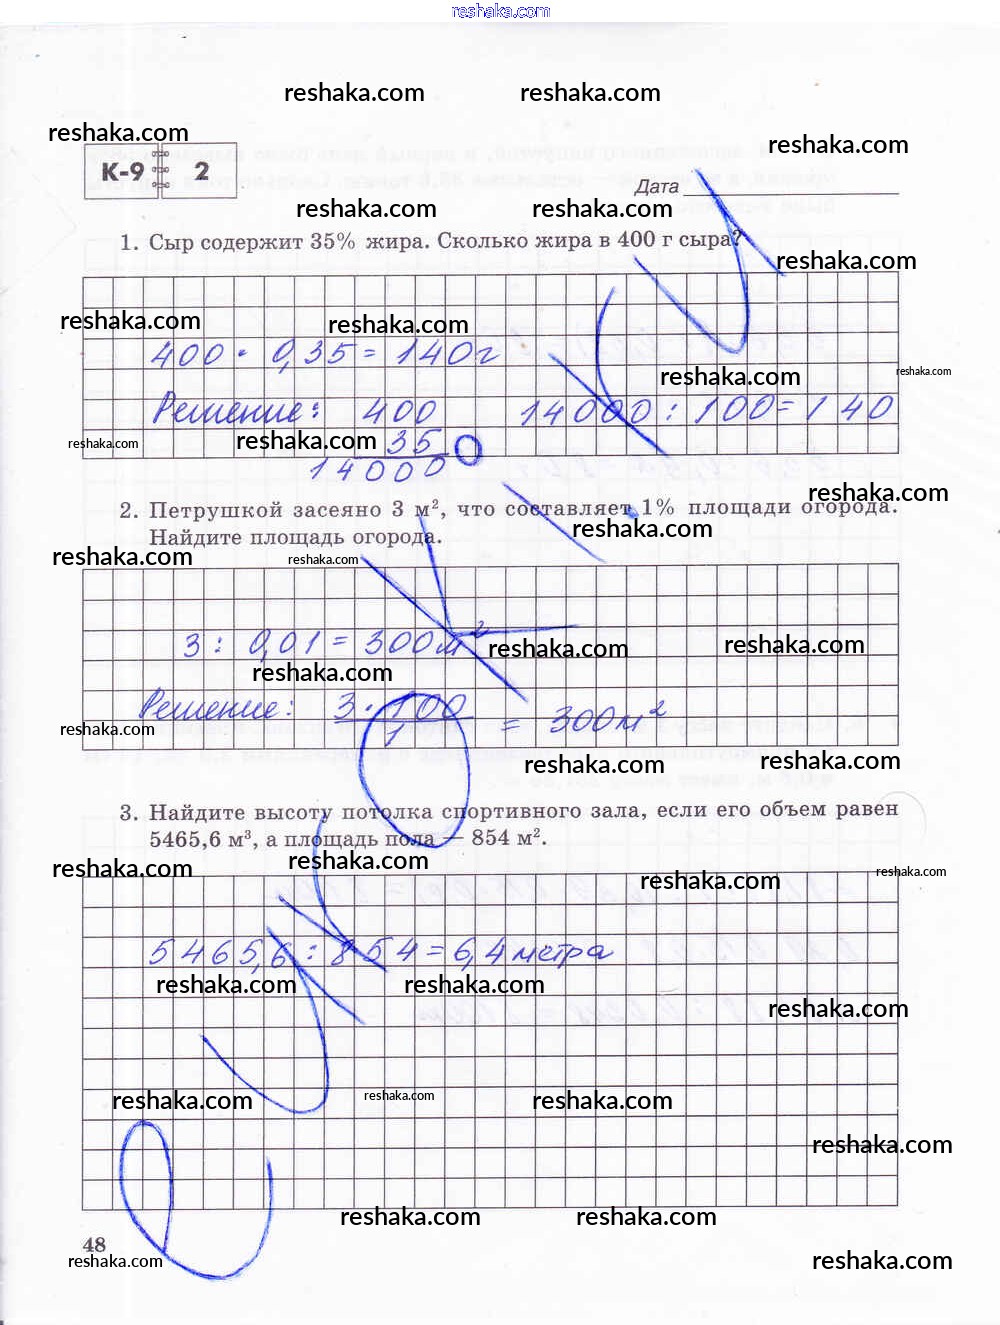 reshaka.com
reshaka.com reshaka.com
reshaka.com
reshaka.com
К-9 2
Дата
reshaka.com reshaka.com
1. Сыр содержит 35% жира. Сколько жира в 400 г сыра?
reshaka.com
reshaka.com reshaka.com
400 · 0,35 = 140 г
reshaka.com reshaka.com
Решение: 400 14000 : 100 = 140
reshaka.com reshaka.com
35
14000
reshaka.com
2. Петрушкой засеяно 3 м², что составляет 1% площади огорода.
reshaka.com
Найдите площадь огорода.
reshaka.com reshaka.com
3 : 0,01 = 300 м²
reshaka.com reshaka.com
reshaka.com
Решение: 3 · 100 / 1 = 300 м²
reshaka.com
reshaka.com reshaka.com
3. Найдите высоту потолка спортивного зала, если его объем равен
5465,6 м³, а площадь пола — 854 м².
reshaka.com reshaka.com
reshaka.com reshaka.com
5465,6 : 854 = 6,4 метра
reshaka.com reshaka.com
reshaka.com
reshaka.com reshaka.com reshaka.com
reshaka.com
reshaka.com reshaka.com
48
reshaka.com reshaka.com